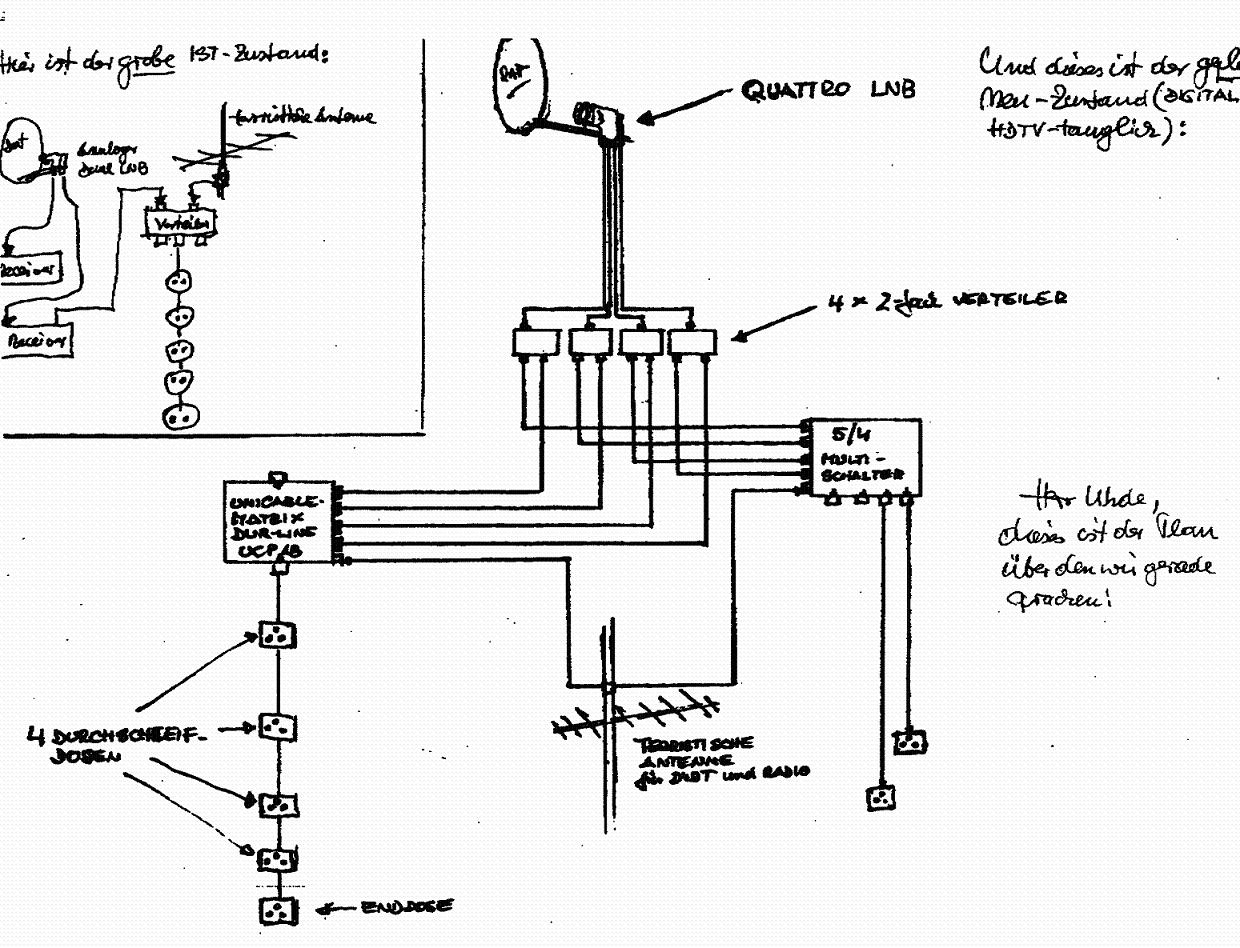 Hier ist der grobe IST-Zustand:
Sat
Analoger
Dual LNB
terristische Antenne
Verteiler
Receiver
Receiver
Sat
QUATTRO LNB
Und dieses ist der
Neu-Zustand (DIGITAL
HDTV-tauglich):
4 x 2-fach VERTEILER
5/4
MULTI-
SCHALTER
UNICABLE-
MATRIX
DUR-LINE
UCP 18
Herr Uhde,
dieses ist der Plan
über den wir gerade
sprachen!
4 DURCHSCHLEIF-
DOSEN
TERRISTISCHE
ANTENNE
für DVBT und RADIO
ENDDOSE